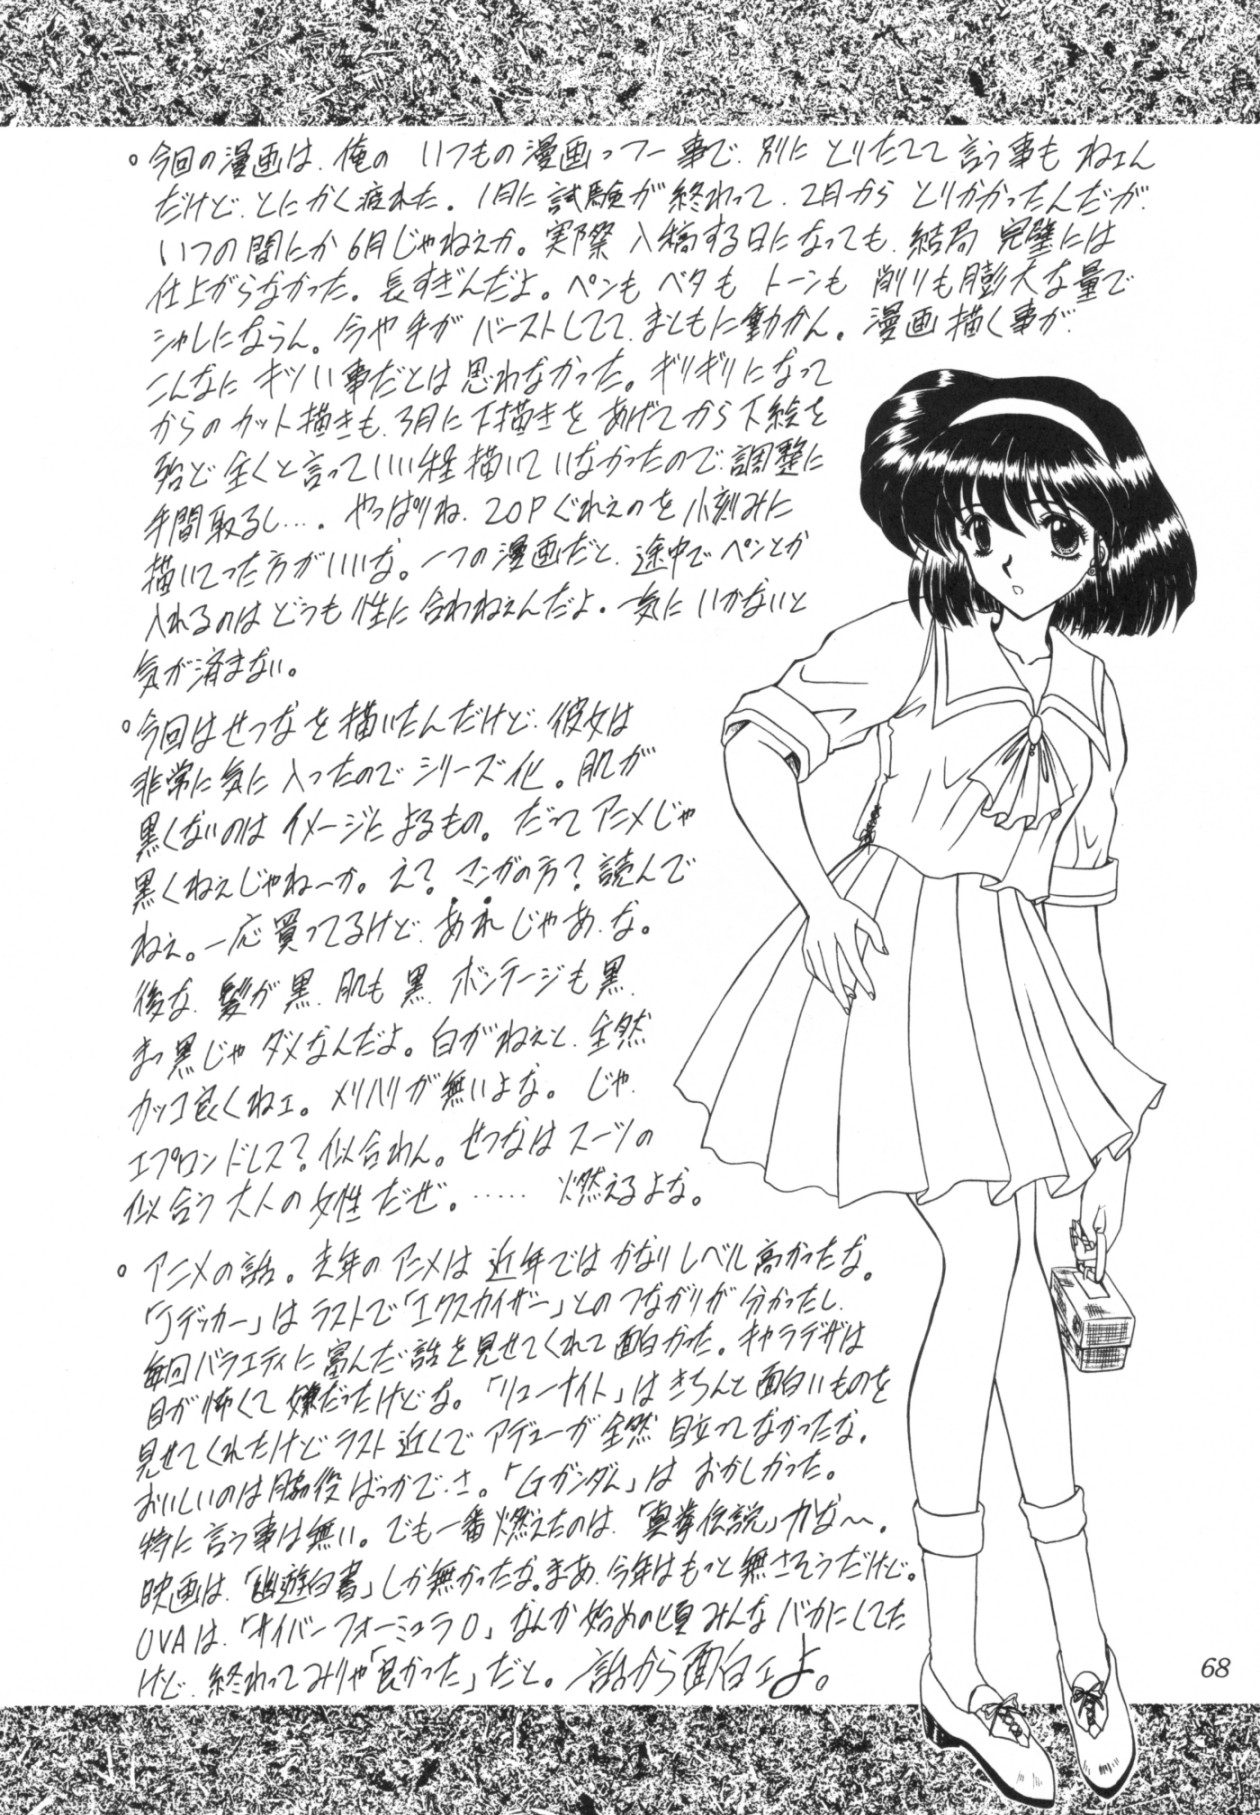 。今回の漫画は、俺の いつもの漫画っつー事で、別に とりたてて 言う事も ねェん
だけど、とにかく疲れた。1月に試験が終わって、2月から とりかかったんだが、
いつの間にか6月じゃねえか。実際 入稿する日になっても、結局 完璧には
仕上がらなかった。長すぎんだよ。ペンも ベタも トーンも 削りも膨大な量で
シャレにならん。今や手が バーストしてて、まともに動かん。漫画描く事が、
こんなに キツい事だとは 思わなかった。ギリギリになって
からの カット描きも、3月に下描きを あげてから下絵を
殆ど 全くと言っていい程 描いていなかったので、調整に
手間取るし…。 やっぱりね、20Pぐれえのを小刻みに
描いてった方がいいな。一つの漫画だと、途中でペンとか
入れるのは どうも性に合わねえんだよ。一気に いかないと
気が済まない。
。今回はせつなを描いたんだけど、彼女は
非常に気に入ったので シリーズ化。肌が
黒くないのは イメージに よるもの。だって アニメじゃ
黒くねえじゃねーか。え? マンガの方? 読んで
ねえ。一応買ってるけど、あれじゃあ、な。
後な、髪が黒、肌も黒、ボンテージも黒、
まっ黒じゃ ダメなんだよ。白がねえと、全然
カッコ良くねェ。メリハリが無いよな。じゃ、
エプロンドレス? 似合わん。せつなはスーツの
似合う大人の女性だぜ。…… 燃えるよな。
。アニメの話。去年のアニメは 近年では かなりレベル高かったな。
「Jデッカー」は ラストで「エクスカイザー」とのつながりが分かったし、
毎回バラエティに富んだ話を見せてくれて面白かった。キャラデザは
目が怖くて嫌だったけどな。「リューナイト」は きちんと面白いものを
見せてくれたけど ラスト近くで アデューが全然 目立ってなかったな。
おいしいのは脇役ばっかでさ。「Gガンダム」は おかしかった。
特に言う事は無い。でも一番燃えたのは、「真拳伝説」かな〜。
映画は、「幽遊白書」しか無かったな。まあ、今年はもっと無さそうだけど。
OVAは、「サイバーフォーミュラ0」、なんか始めの頃みんなバカにしてた
けど、終わってみりゃ「良かった」だと。話から面白ェよ。
68